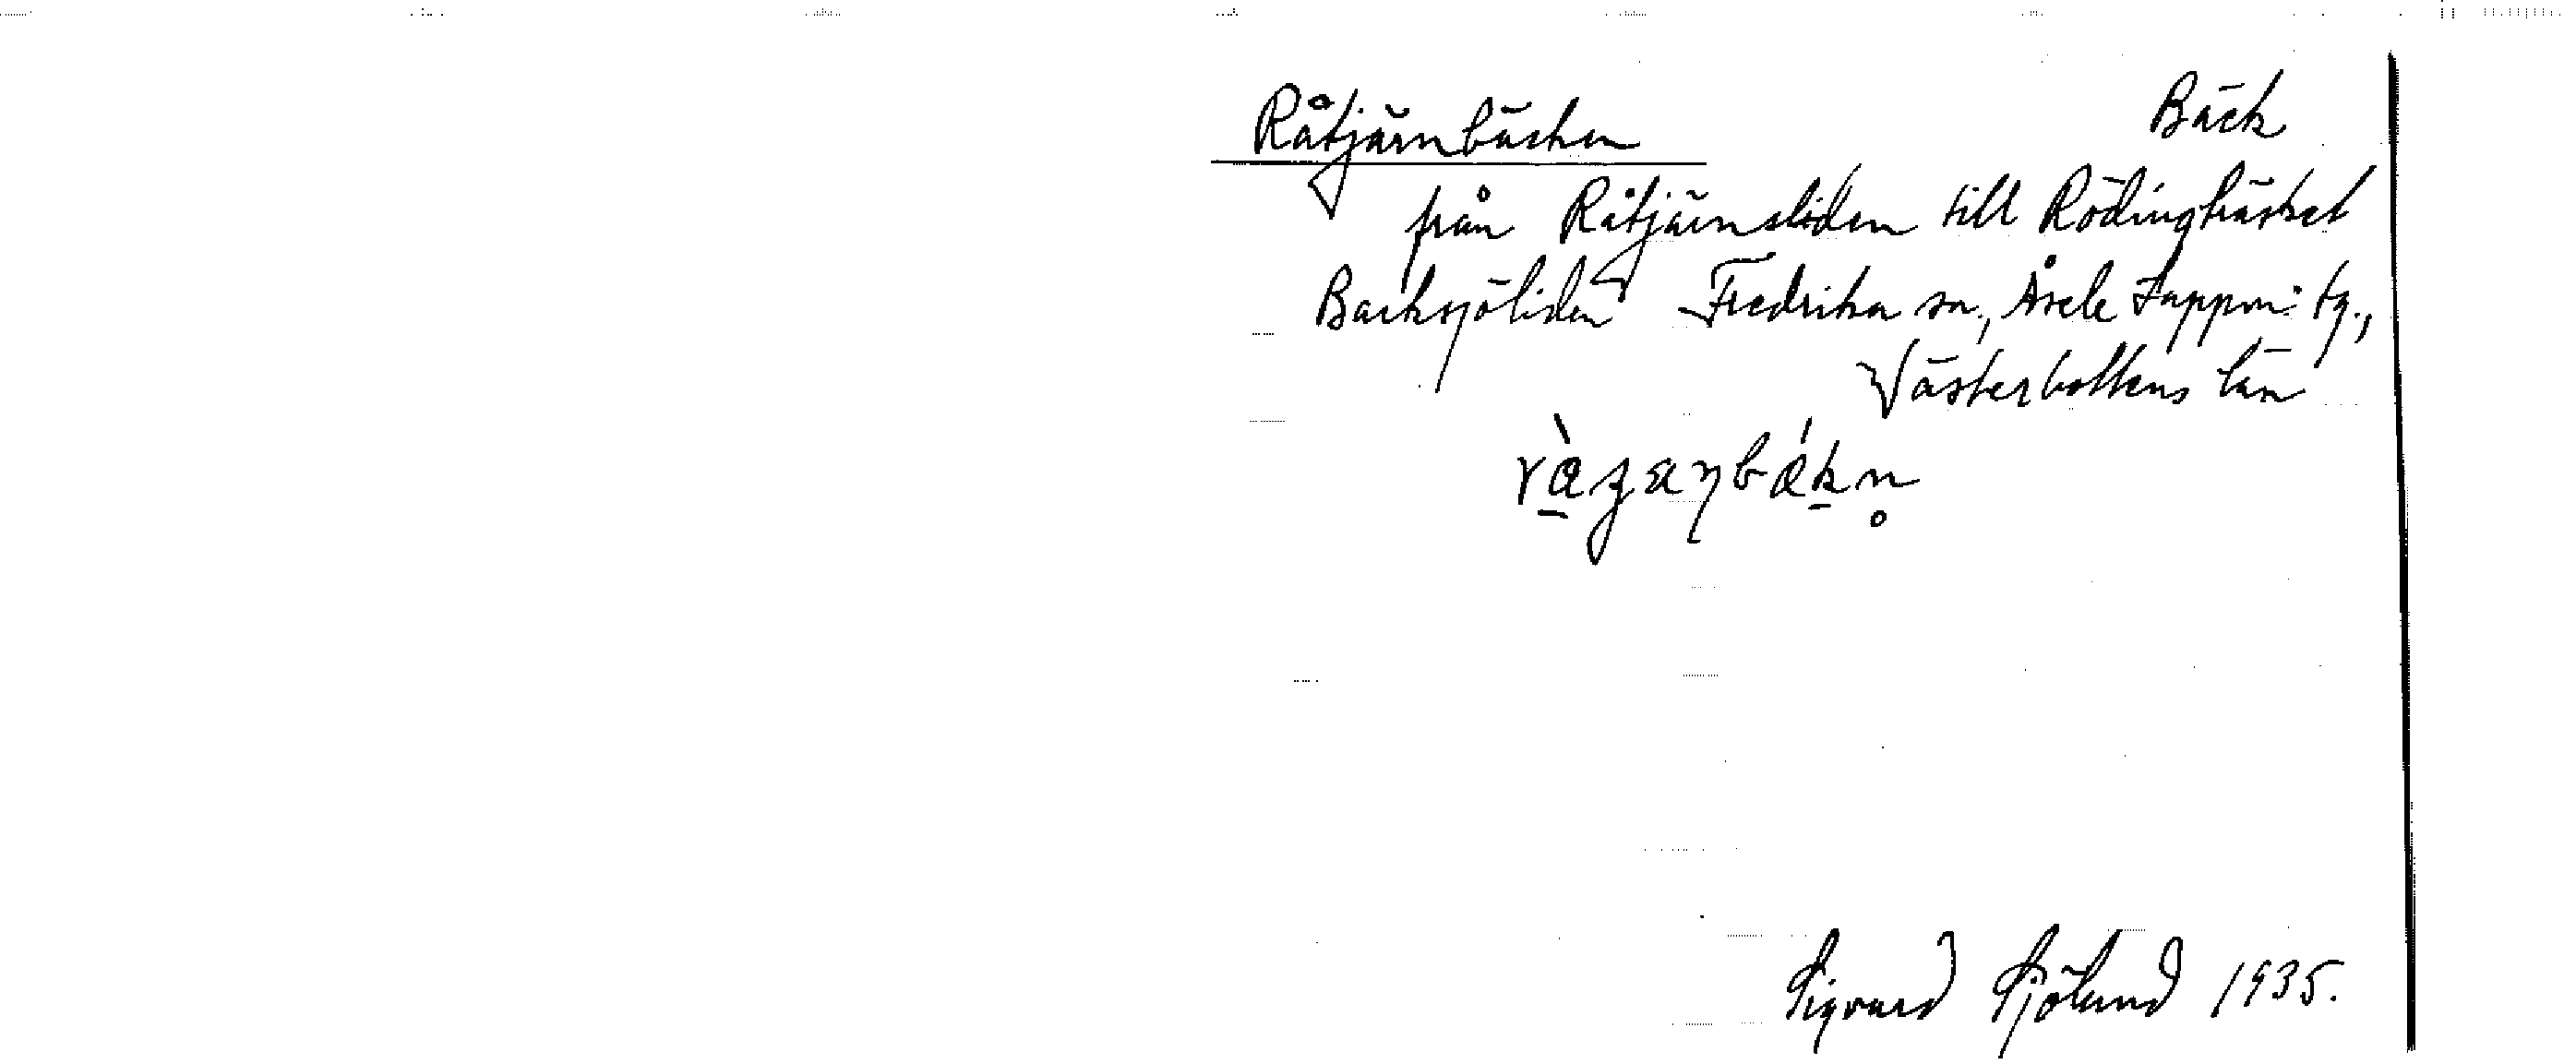 Råtjärnbäcken Bäck
från Råtjärnsliden till Rödingträsket
Backsjöliden Fredrika sn., Åsele Lappm. tg.,
Västerbottens län
Sigvard Sjölund 1935.